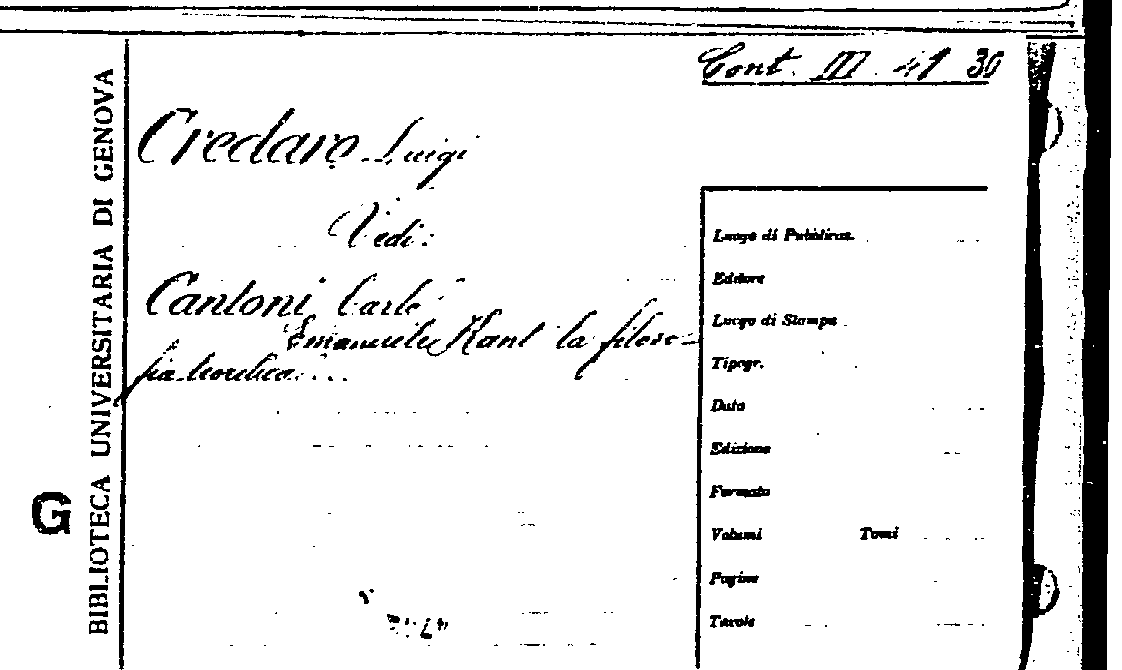 Cont. III. 41 30
BIBLIOTECA UNIVERSITARIA DI GENOVA
G
Credaro Luigi
Vedi:
Cantoni Carlo
Emanuele Kant la filoso-
fia teoretica...
Luogo di Pubblicaz.
Editore
Luogo di Stampa
Tipogr.
Data
Edizione
Formato
Volumi Tomi
Pagine
Tavole